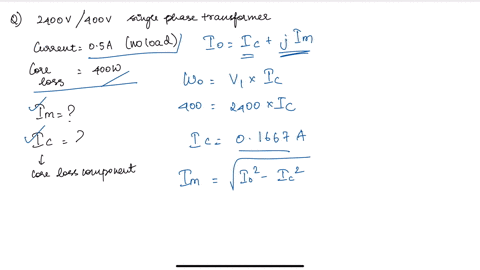 Q) 2400V/400V single phase transformer
Current = 0.5A (no load)
Core loss = 400W
Im = ?
Ic = ?
↓
core loss component
I0 = Ic + j Im
W0 = V1 × Ic
400 = 2400 × Ic
Ic = 0.1667 A
Im = √(I0² - Ic²)